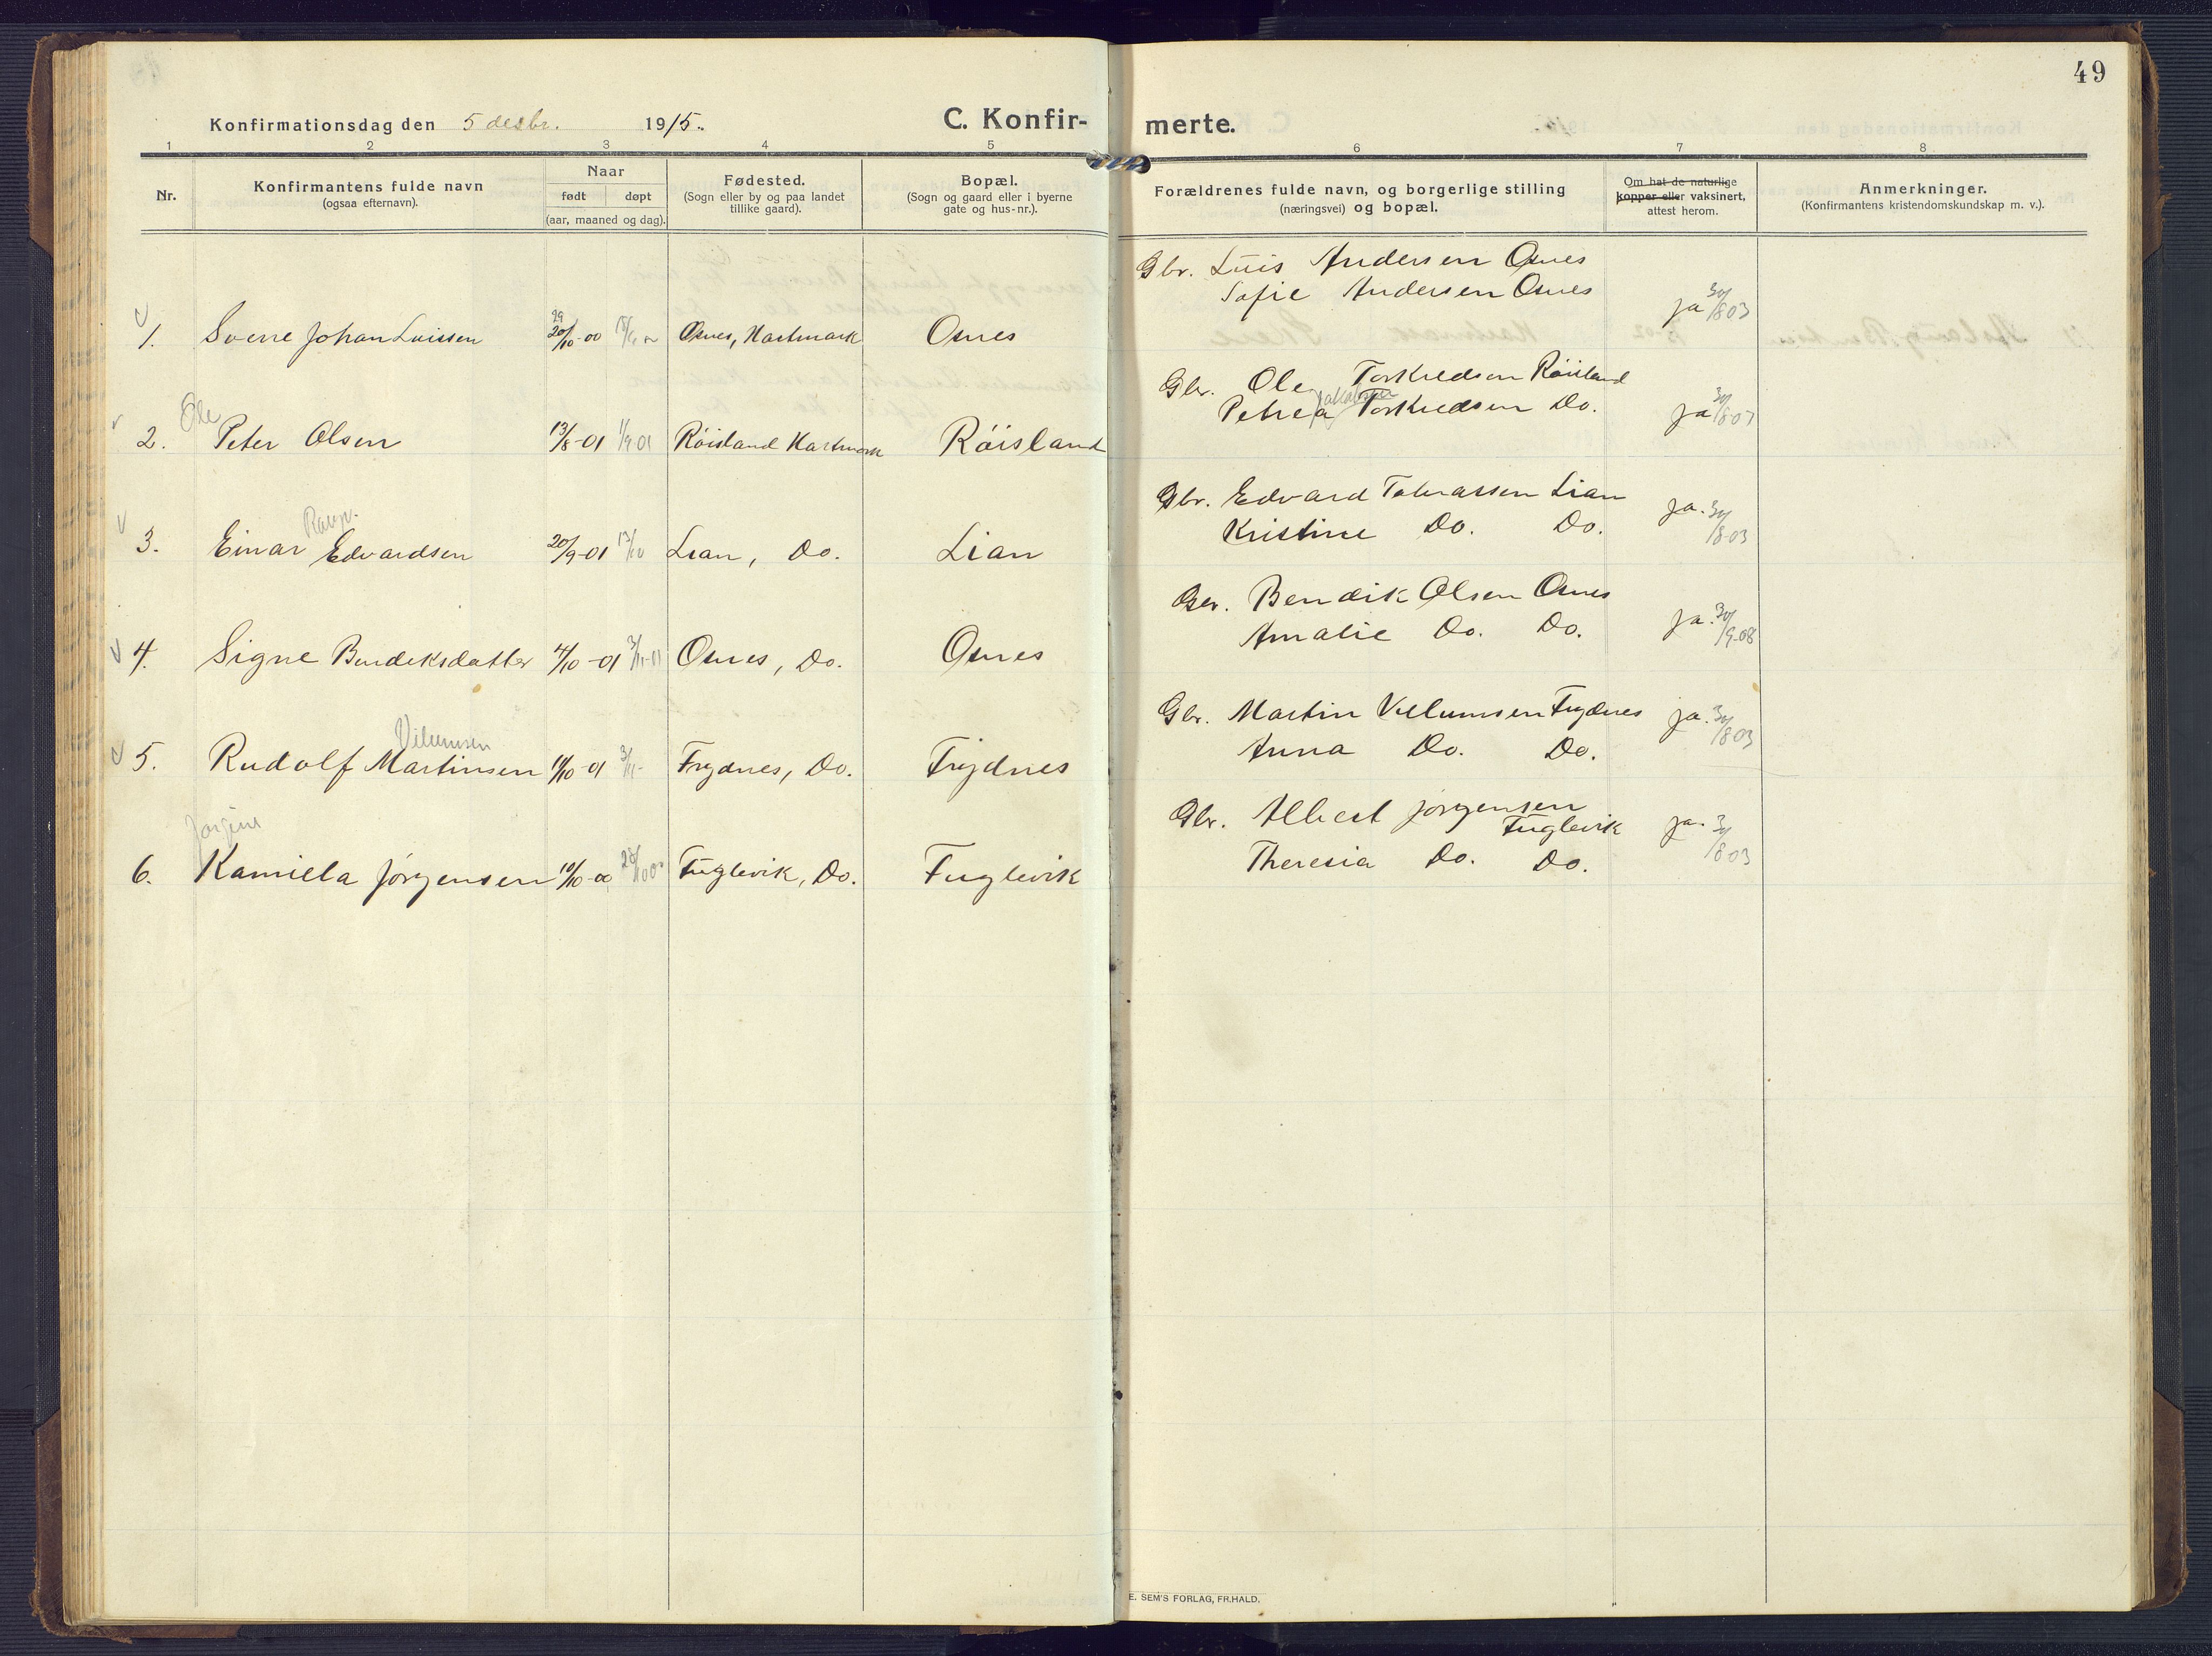 49
Konfirmationsdag den 5 desbr. 1915.
C. Konfir-
merte.
1 2 3 4 5 6 7 8
Nr.
Konfirmantens fulde navn
(ogsaa efternavn).
Naar
født døpt
(aar, maaned og dag).
Fødested.
(Sogn eller by og paa landet
tillike gaard).
Bopæl.
(Sogn og gaard eller i byerne
gate og hus-nr.).
Forældrenes fulde navn, og borgerlige stilling
(næringsvei) og bopæl.
Om hat de naturlige
kopper eller vaksinert,
attest herom.
Anmerkninger.
(Konfirmantens kristendomskundskap m. v.).
Gbr. Luis Andersen Osnes
Sofie Andersen Osnes
1. Sverre Johan Luissen 29 20/10-00 Osnes, Hartmark Osnes ja 30/8 03
Gbr. Ole Torkredsen Röisland
Ole Jakobsen
2. Peter Olsen 13/8-01 1/9 01 Röisland Hartmark Röisland Petrea Torkredsen Do. ja 30/8 03
Gbr. Edvard Tobiassen Lian ja. 30/8-03
Ragn.
3. Einar Edvardsen 20/9-01 13/10 Lian, Do. Lian Kristine Do. Do.
Gbr. Bendik Olsen Osnes
4. Signe Bendiksdatter 4/10-01 3/11-01 Osnes, Do. Osnes Amalie Do. Do. ja. 30/9-08
Gbr. Martin Vilumsen Frydnes ja. 30/8 03
Vilumsen
5. Rudolf Martinsen 11/10-01 3/11- Frydnes, Do. Frydnes Anna Do. Do.
Gbr. Albert Jörgensen
Fuglevik ja. 30/8 03
Jörgine
6. Kamilla Jörgensen 10/10-00 28/10 00 Fuglevik, Do. Fuglevik Theresia Do. Do.
E. SEM'S FORLAG, FR.HALD.